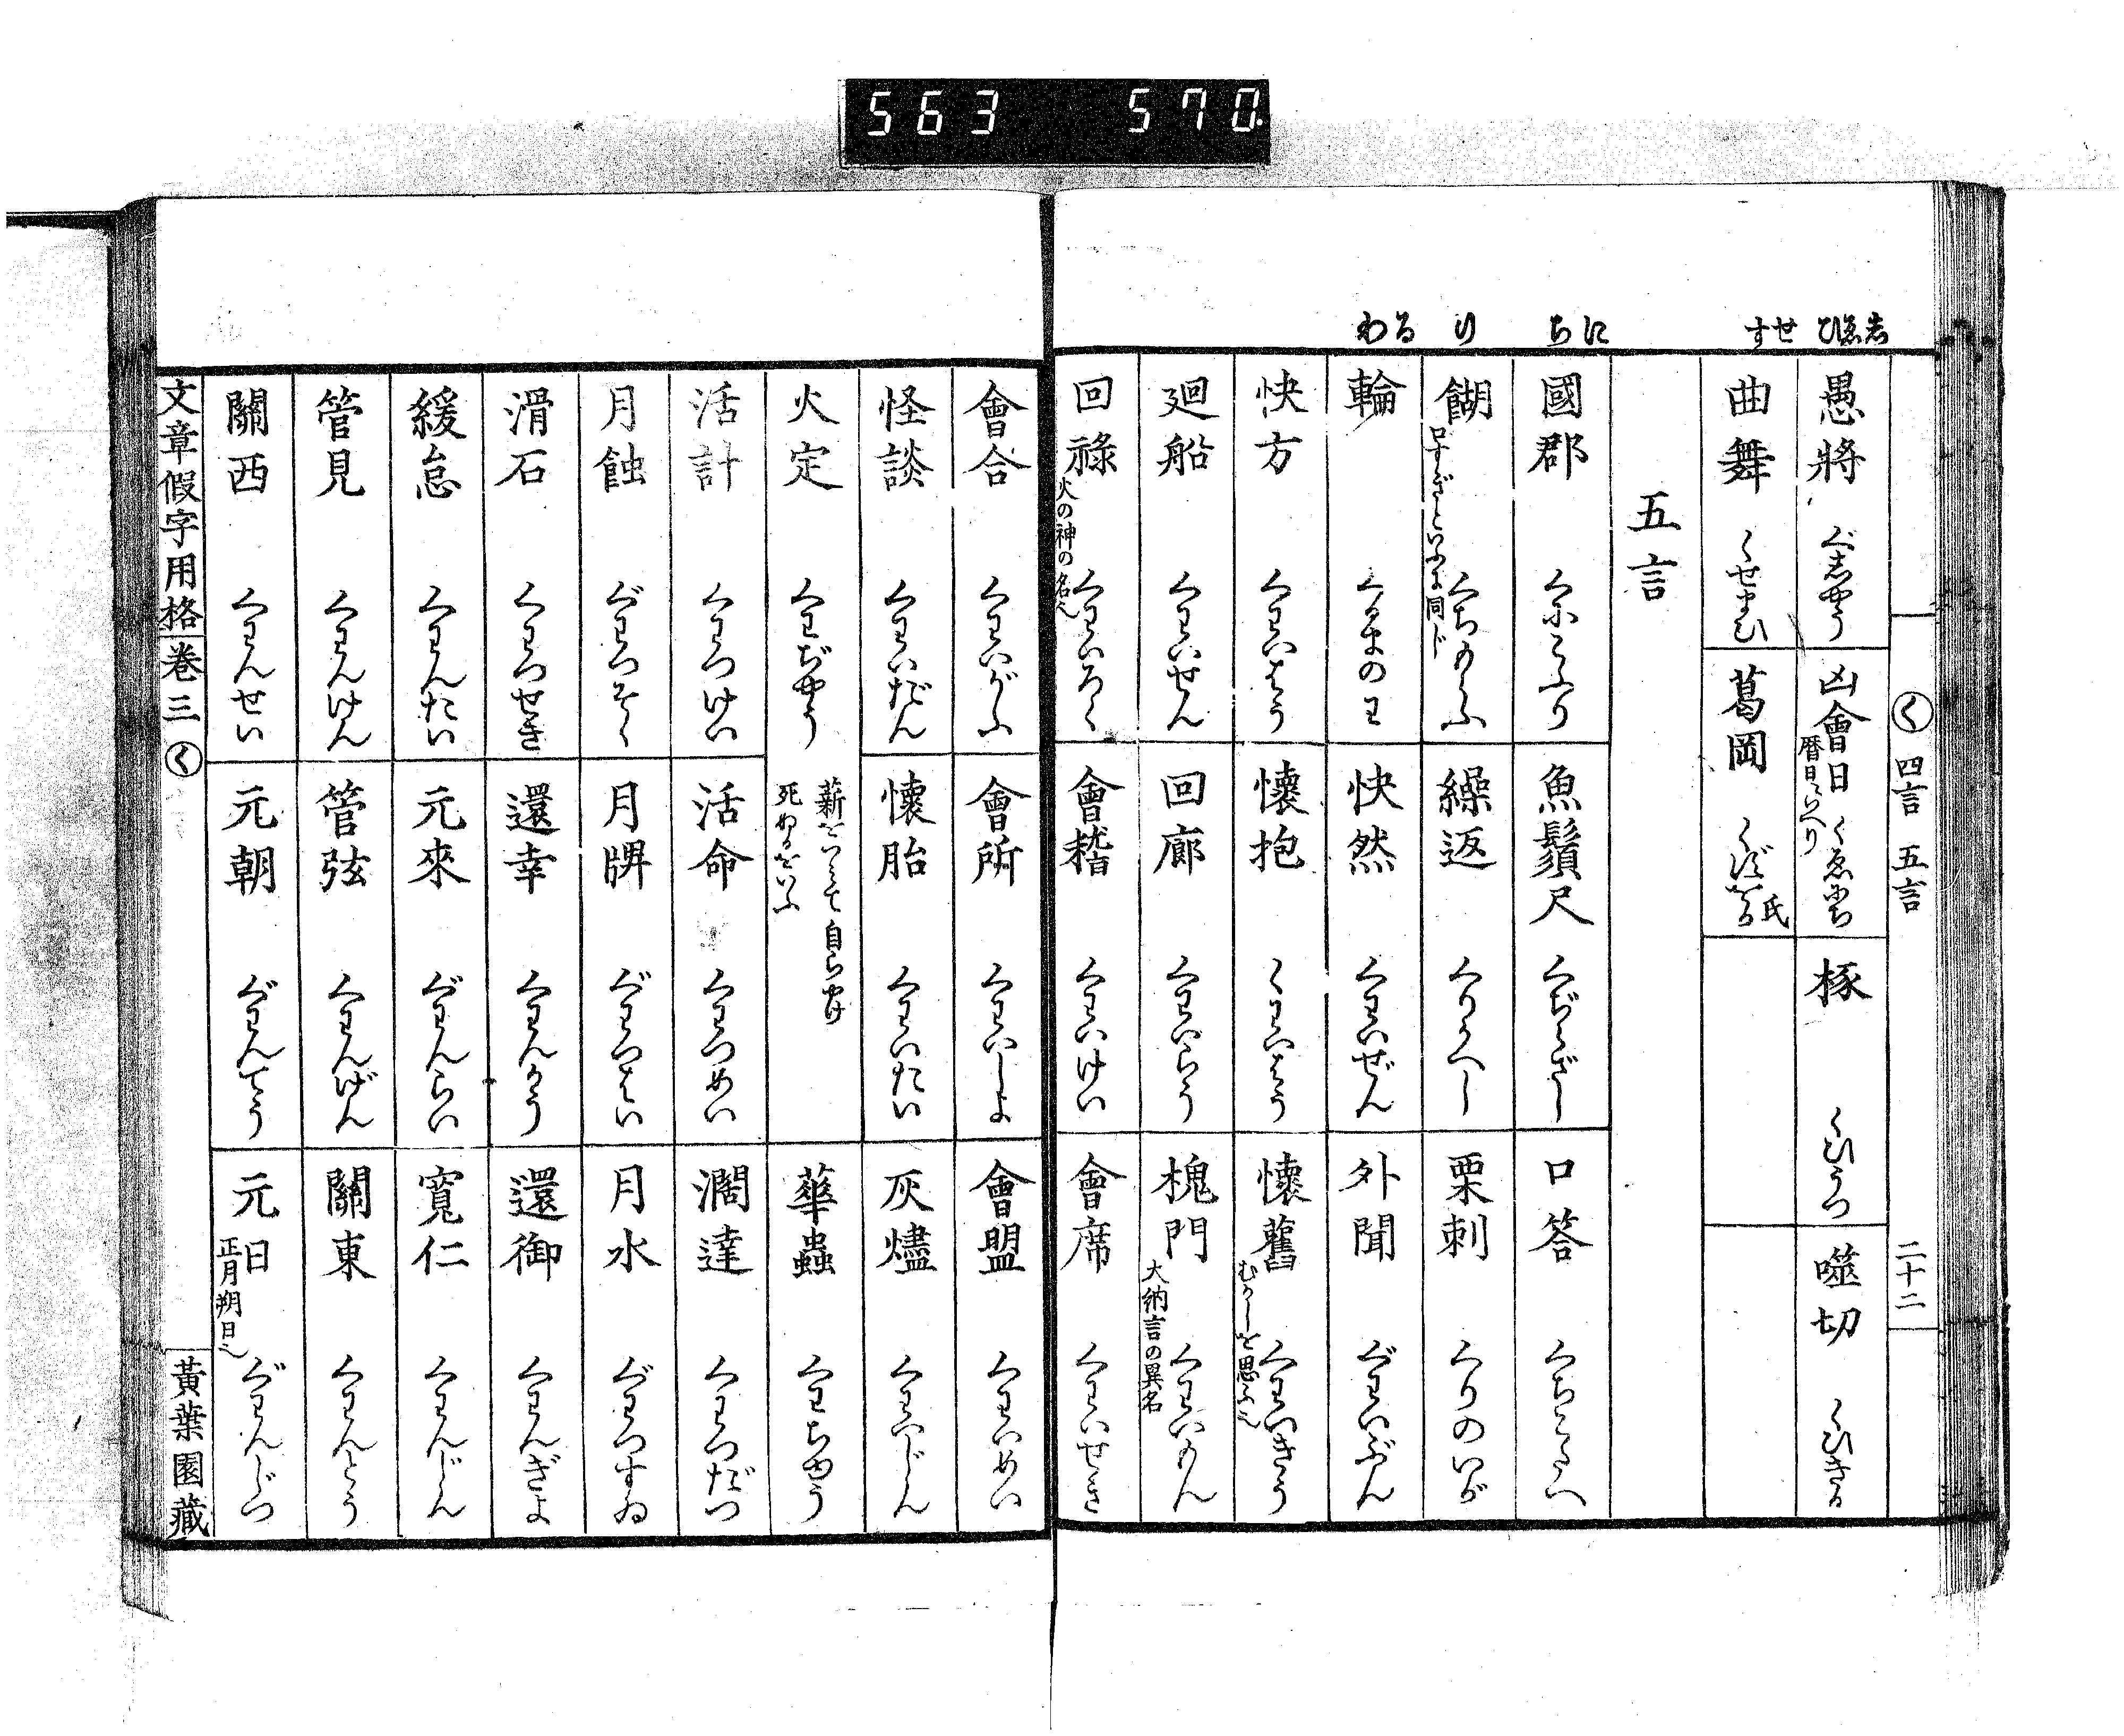 563 570
しゑひ せす にち り るわ
く 四言 五言 二十二
愚將 ぐしやう
凶會日 暦日にいへり くゑにち
椓 くひうつ
噬切 くひきる
曲舞 くせまひ
葛岡 くずをか 氏
五言
國郡 くにこふり
魚鬚尺 くぢらざし
口答 くちこたへ
餬 口すぎといふに同じ くちもらふ
繰返 くりかへし
栗刺 くりのいが
輪 くるまのわ
快然 くわいぜん
外聞 ぐわいぶん
快方 くわいはう
懷抱 くわいはう
懷舊 むかしを思ふ也 くわいきう
廻船 くわいせん
回廊 くわいらう
槐門 大納言の異名 くわいもん
回祿 火の神の名也 くわいろく
會稽 くわいけい
會席 くわいせき
會合 くわいがふ
會所 くわいしよ
會盟 くわいめい
怪談 くわいだん
懷胎 くわいたい
灰燼 くわいじん
火定 くわぢやう
薪をつみて自らやけ死ぬるをいふ
華蟲 くわちゆう
活計 くわつけい
活命 くわつめい
濶達 くわつだつ
月蝕 ぐわつそく
月牌 ぐわつはい
月水 ぐわつすゐ
滑石 くわつせき
還幸 くわんかう
還御 くわんぎよ
緩怠 くわんたい
元來 ぐわんらい
寬仁 くわんじん
管見 くわんけん
管弦 くわんげん
關東 くわんとう
關西 くわんせい
元朝 ぐわんてう
元日 正月朔日也 ぐわんじつ
文章假字用格 卷三 く
黃葉園藏